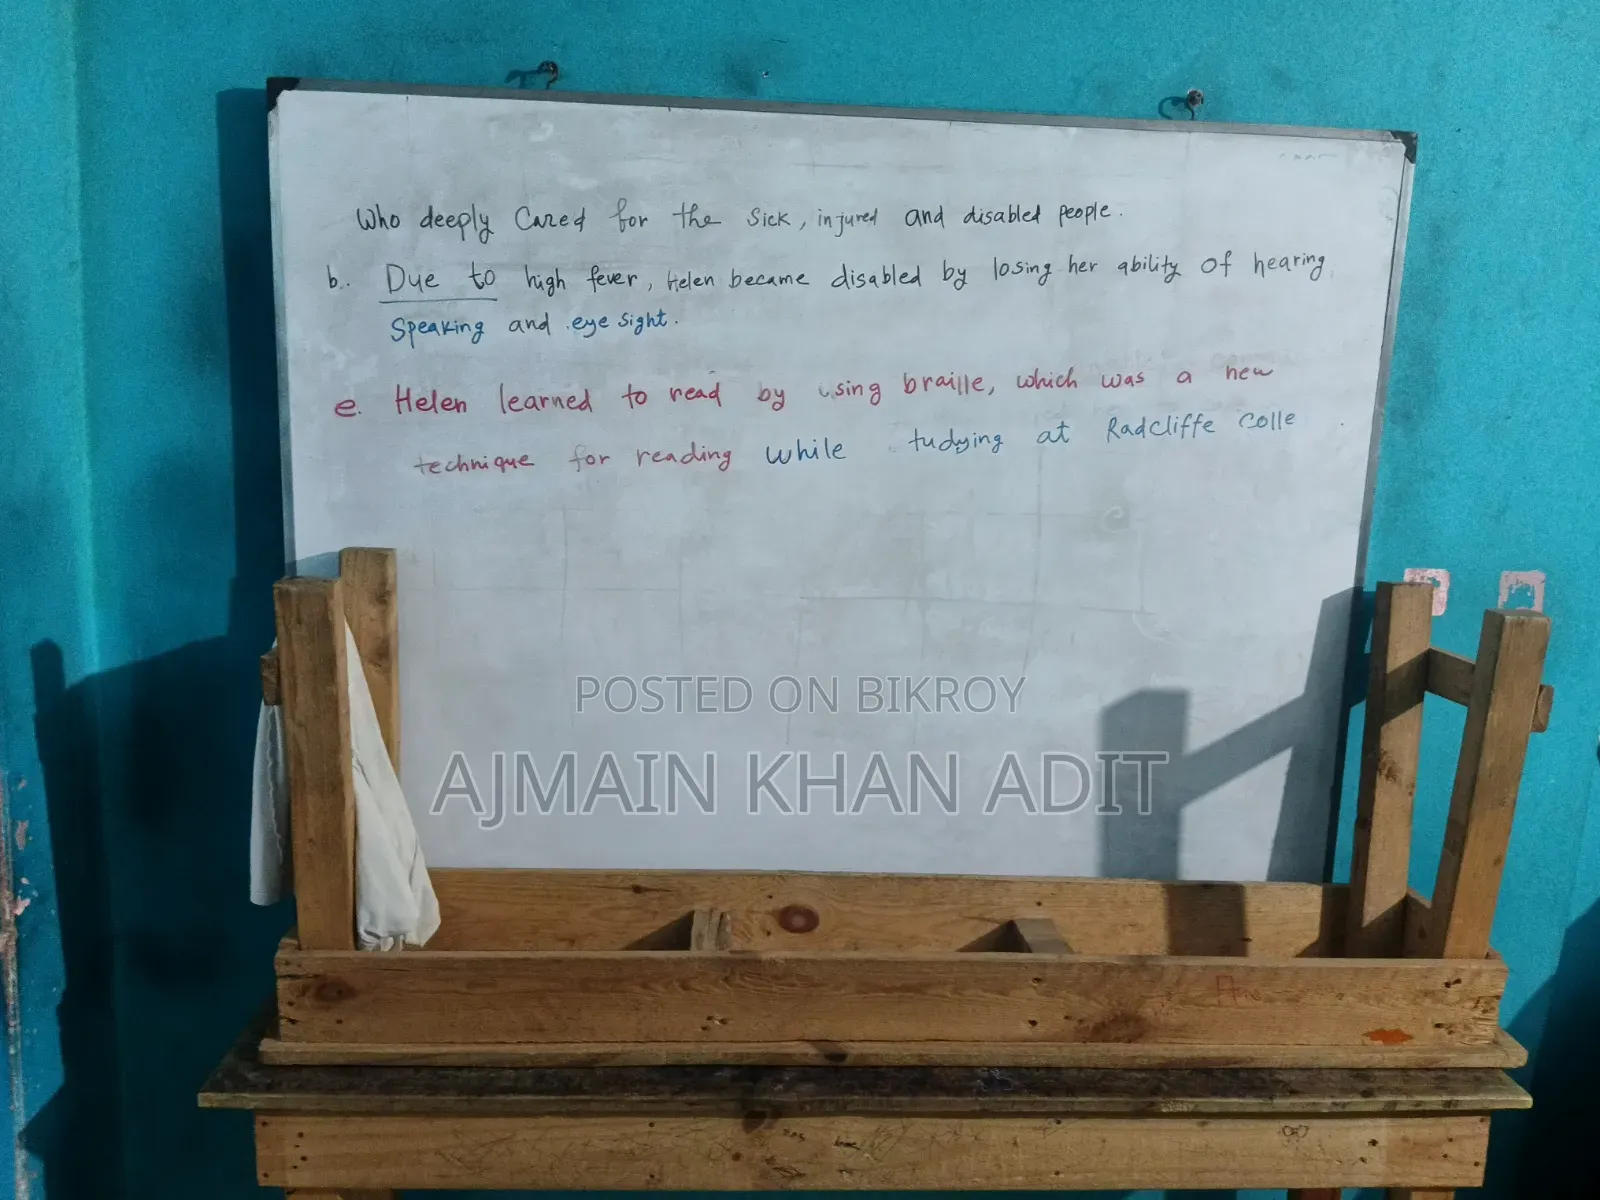 Who deeply Cared for the Sick, injured and disabled people.
b. Due to high fever, Helen became disabled by losing her ability of hearing
Speaking and eye sight.
e. Helen learned to read by using braille, which was a new
technique for reading while tudying at Radcliffe colle
POSTED ON BIKROY
AJMAIN KHAN ADIT